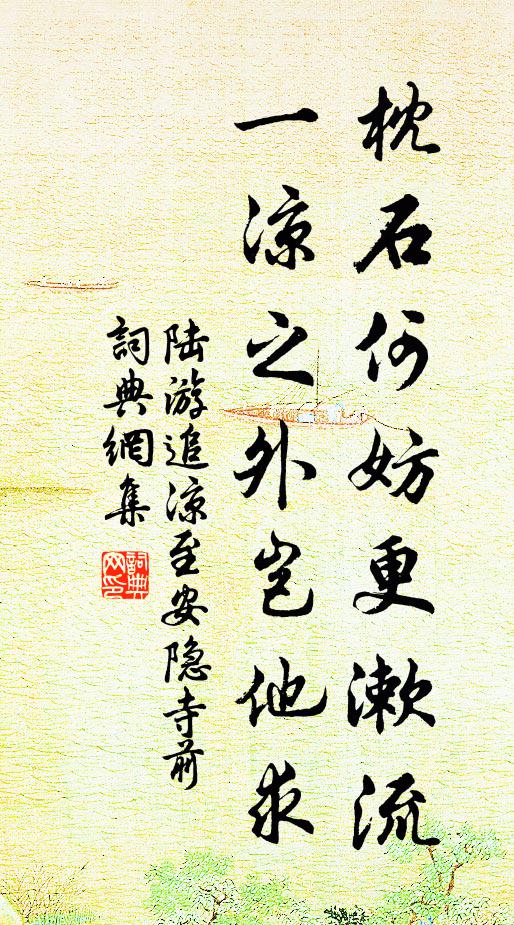 枕石何妨更漱流
一凉之外岂他求
陆游追凉至安隐寺前
詞典網集
詞典网印